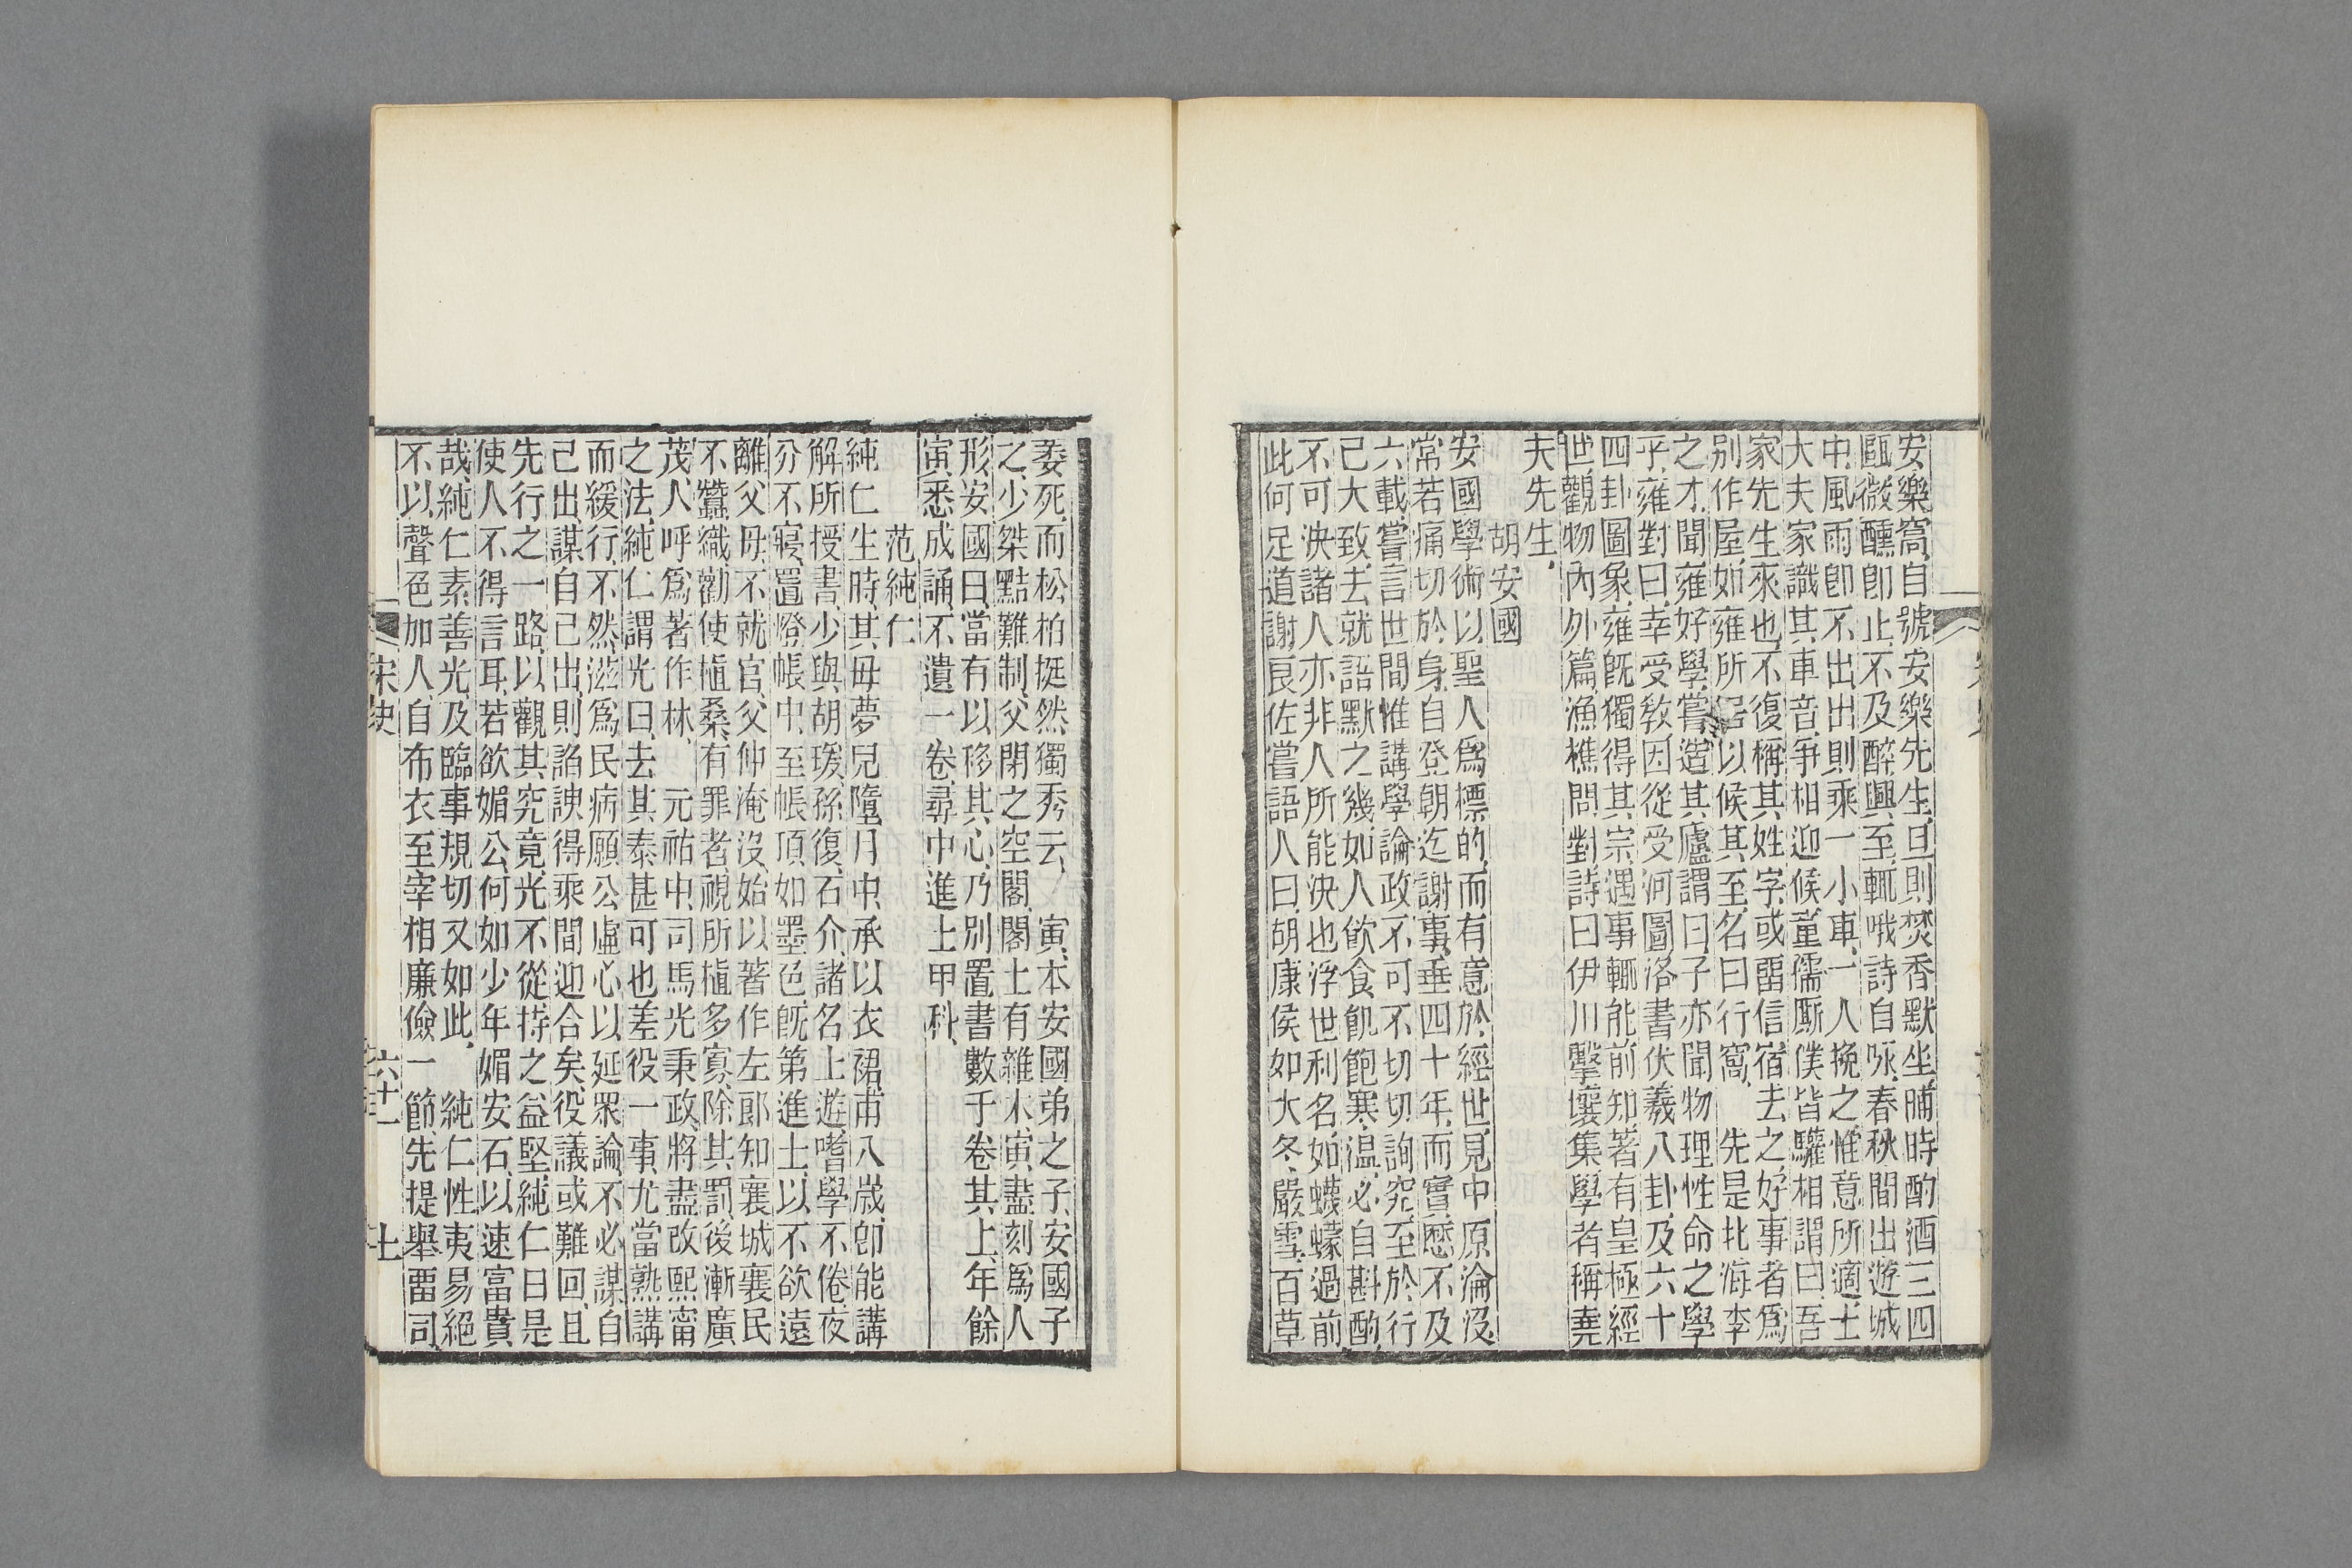 安樂窩、自號安樂先生、旦則焚香默坐、晡時酌酒三四
甌、微醺卽止、不及醉、興至、輒哦詩自咏、春秋間出遊城
中、風雨卽不出、出則乘一小車、一人挽之、惟意所適、士
大夫家識其車音、爭相迎候、童孺厮僕皆驩相謂曰、吾
家先生來也、不復稱其姓字、或畱信宿去之、好事者爲
别作屋、如雍所居、以候其至、名曰行窩、　先是北海李
之才、聞雍好學、嘗造其廬、謂曰、子亦聞物理性命之學
乎、雍對曰、幸受敎、因從受河圖洛書伏羲八卦、及六十
四卦圖象、雍旣獨得其宗、遇事輒能前知、著有皇極經
世、觀物內外篇、漁樵問對、詩曰伊川擊壤集、學者稱堯
夫先生、
胡安國
安國學術以聖人爲標的、而有意於經世、見中原淪沒、
常若痛切於身、自登朝迄謝事、垂四十年、而實歷不及
六載、嘗言世間惟講學論政、不可不切切詢究、至於行
己大致、去就語默之幾、如人飮食、飢飽寒温、必自斟酌、
不可決諸人、亦非人所能決也、浮世利名、如蠛蠓過前、
此何足道、謝良佐嘗語人曰、胡康侯如大冬嚴雪、百草
萎死、而松柏挺然獨秀云、　寅、本安國弟之子、安國子
之、少桀黠難制、父閉之空閣、閣上有雜木、寅盡刻爲人
形、安國曰、當有以移其心、乃別置書數千卷其上、年餘
寅悉成誦、不遺一卷、尋中進士甲科、
范純仁
純仁生時、其母夢兒墮月中、承以衣裾、甫八歲、卽能講
解所授書、少與胡瑗、孫復、石介、諸名士遊、嗜學不倦、夜
分不寢、置燈帳中、至帳頂如墨色、旣第進士、以不欲遠
離父母、不就官、父仲淹沒、始以著作左郎知襄城、襄民
不蠶織、勸使植桑、有罪者、視所植多寡、除其罰、後漸廣
茂、人呼爲著作林、　元祐中、司馬光秉政、將盡改熙甯
之法、純仁謂光曰、去其泰甚可也、差役一事、尤當熟講
而緩行、不然、滋爲民病、願公虛心以延眾論、不必謀自
己出、謀自己出、則諂諛得乘間迎合矣、役議或難回、且
先行之一路、以觀其究竟、光不從、持之益堅、純仁曰、是
使人不得言耳、若欲媚公、何如少年媚安石、以速富貴
哉、純仁素善光、及臨事規切又如此、　純仁性夷易、絕
不以聲色加人、自布衣至宰相、廉儉一節、先提舉畱司
宋史
六十一
七